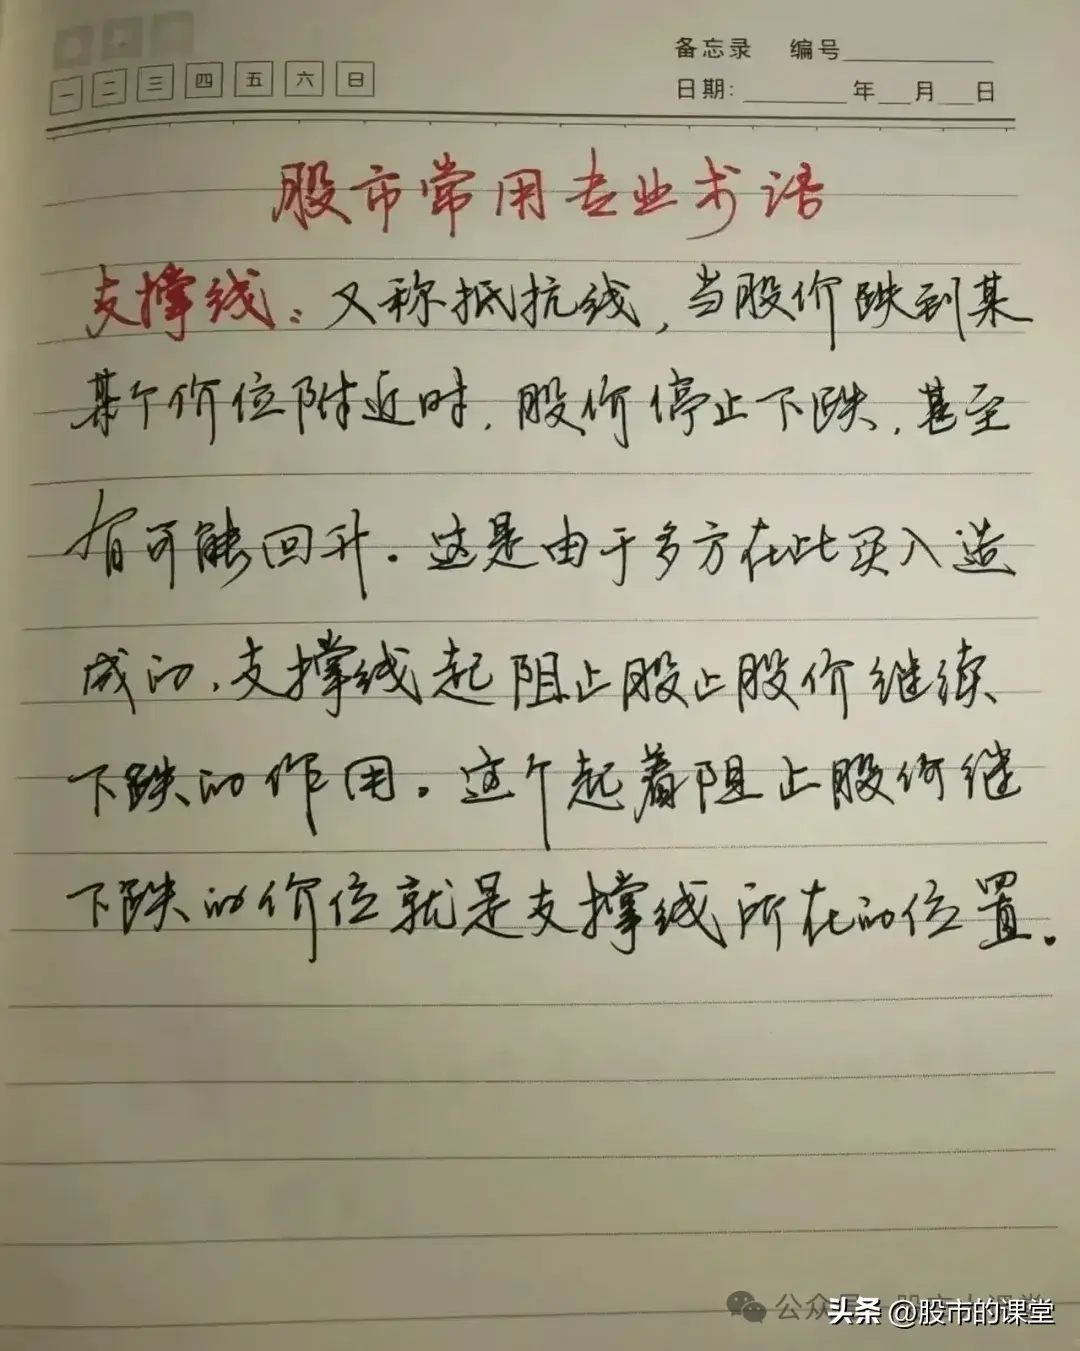 备忘录 编号
一 二 三 四 五 六 日
日期: 年 月 日
股市常用专业术语
支撑线：又称抵抗线，当股价跌到某
某个价位附近时，股价停止下跌，甚至
有可能回升。这是由于多方在此买入造
成的，支撑线起阻止股止股价继续
下跌的作用。这个起着阻止股价继
下跌的价位就是支撑线所在的位置.
公众号
头条 @股市的课堂